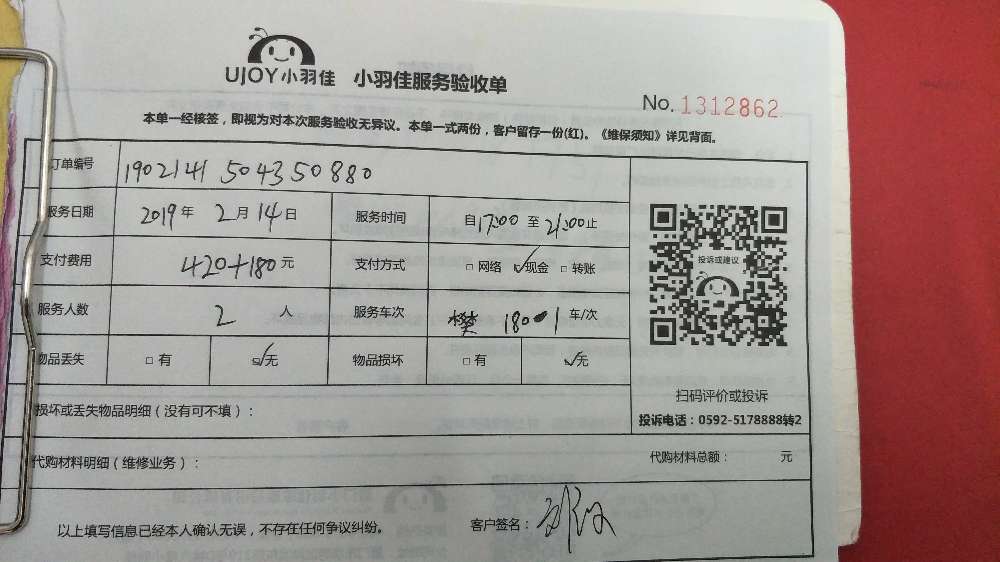 UJOY小羽佳 小羽佳服务验收单
No. 1312862
本单一经核签，即视为对本次服务验收无异议。本单一式两份，客户留存一份(红)。《维保须知》详见背面。
订单编号 1902141504350880
服务日期 2019年 2月14日 服务时间 自17:00至21:00止
支付费用 420+180元 支付方式 □网络 ☑现金 □转账
投诉或建议
服务人数 2 人 服务车次 樊 180 1 车/次
物品丢失 □有 ☑无 物品损坏 □有 ☑无
扫码评价或投诉
投诉电话：0592-5178888转2
损坏或丢失物品明细（没有可不填）：
代购材料明细（维修业务）： 代购材料总额： 元
以上填写信息已经本人确认无误，不存在任何争议纠纷。 客户签名：